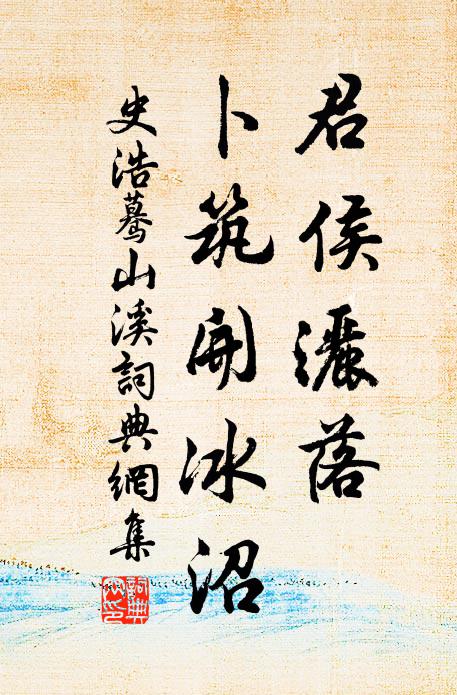 君侯灑落
卜筑開冰沼
史浩驀山溪詞典網集